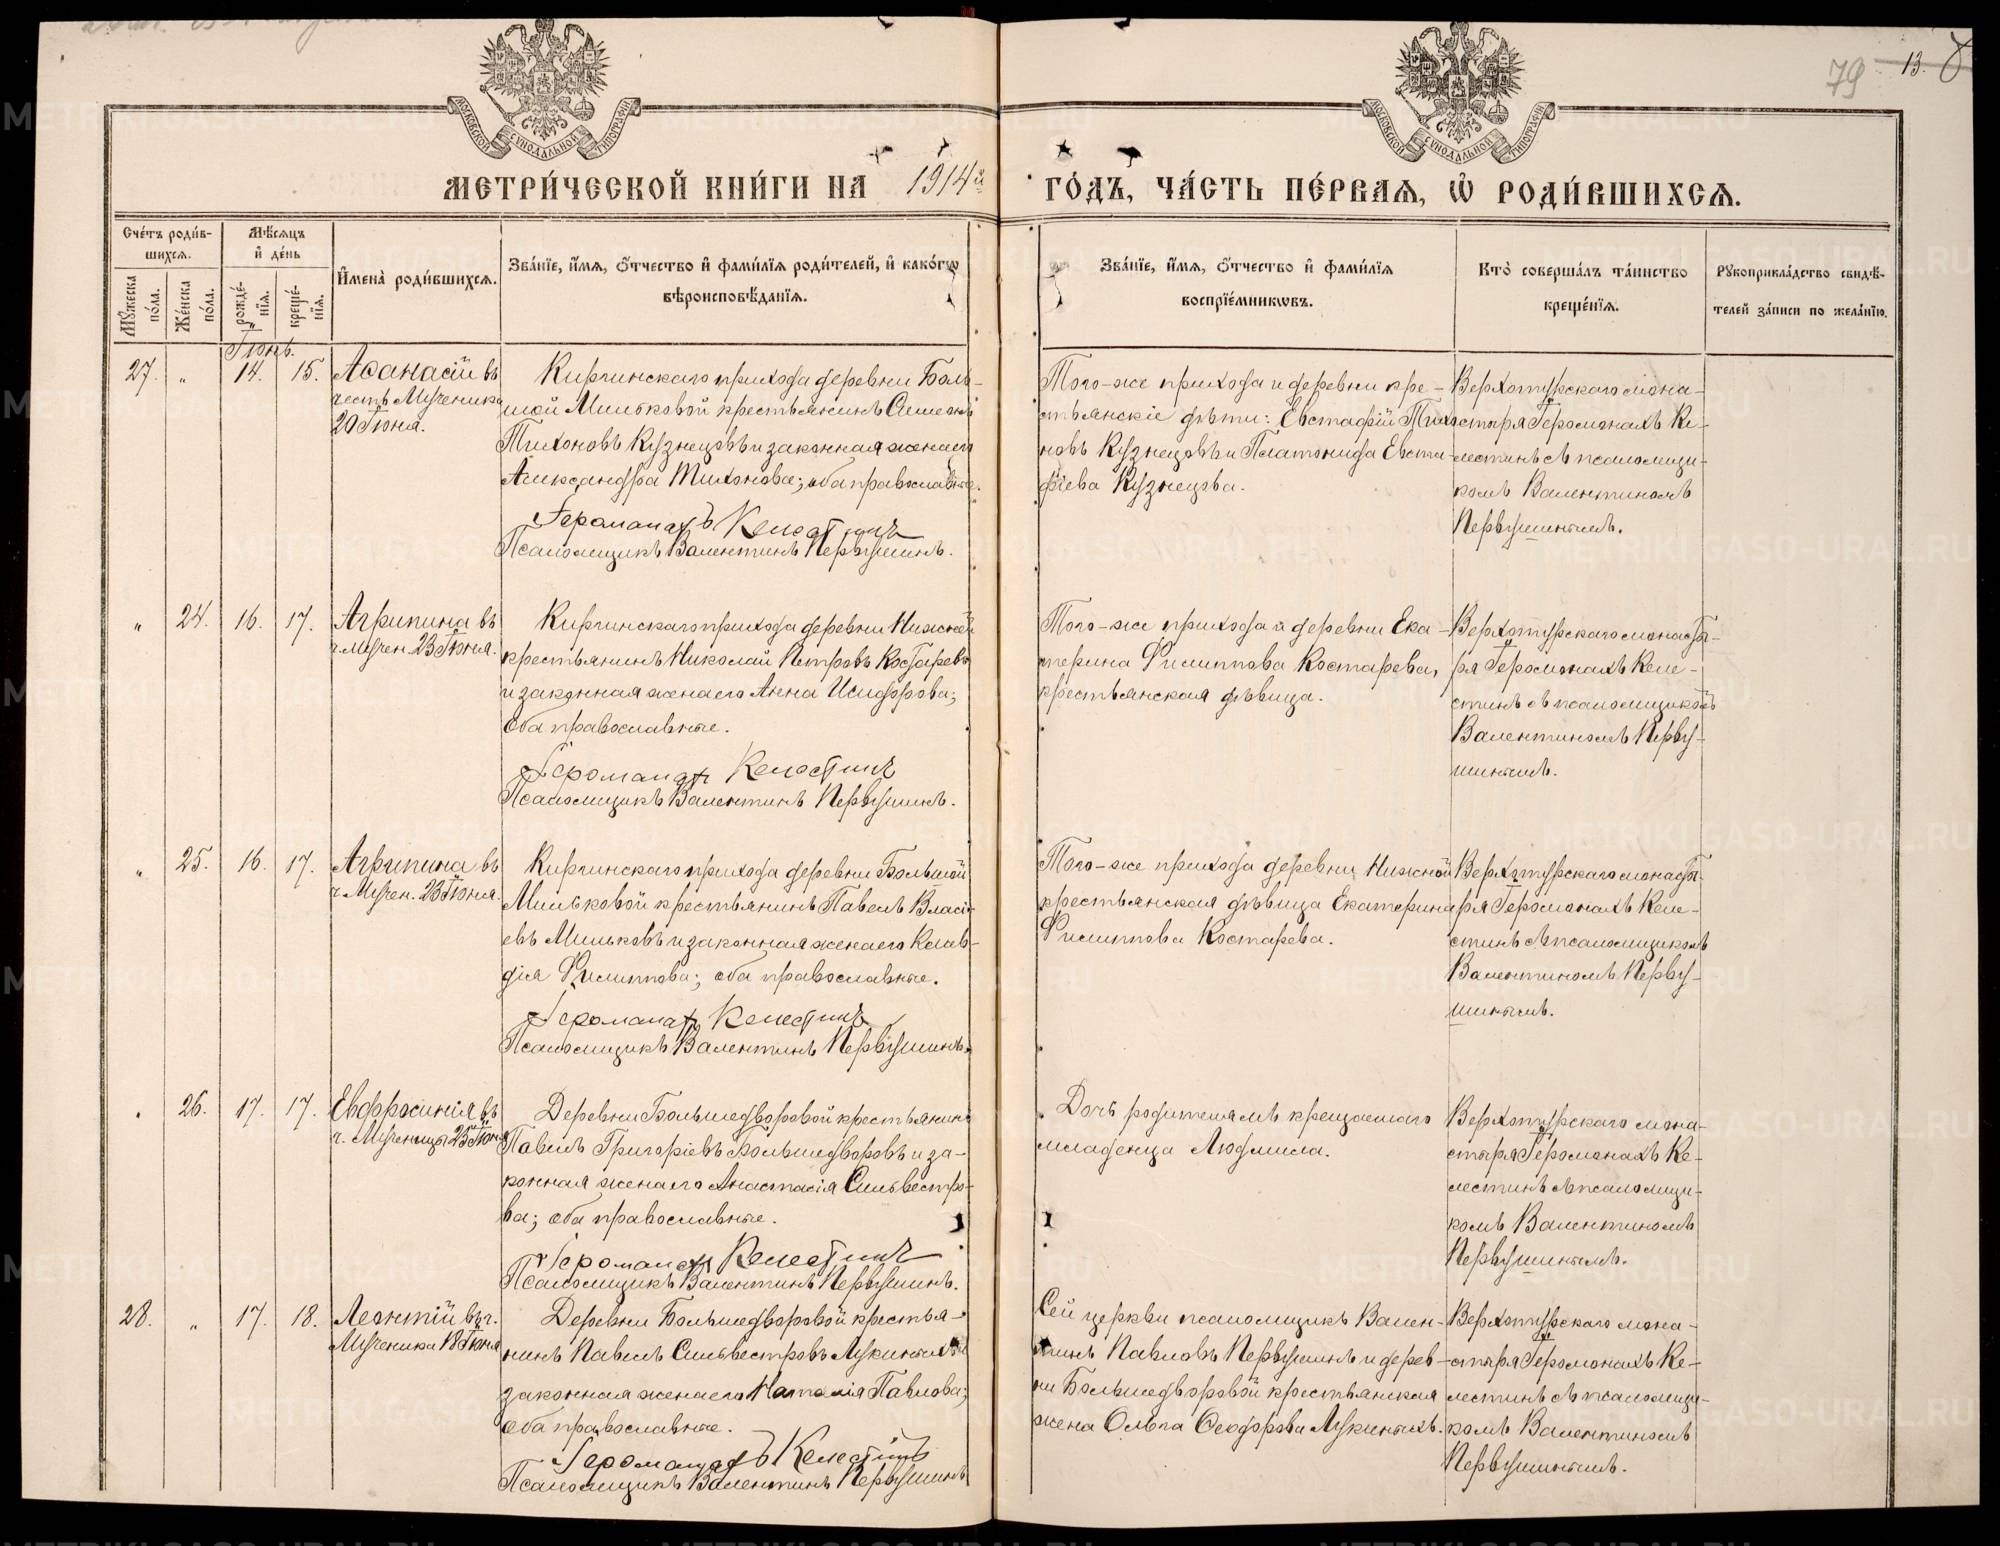 МОСКОВСКОЙ СѴНОДАЛЬНОЙ ТИПОГРАФІИ
МОСКОВСКОЙ СѴНОДАЛЬНОЙ ТИПОГРАФІИ
79 13.
МЕТРИ́ЧЕСКОЙ КНИ́ГИ НА 1914й ГО́ДЪ, ЧА́СТЬ ПЕ́РВАЯ, Ѿ РОДИ́ВШИХСЯ.
Сче́тъ роди́в-
шихся.
Му́жеска по́ла.
Же́нска по́ла.
Мѣ́сяцъ
и҆ де́нь
рожде́нїя.
креще́нїя.
И҆мена̀ роди́вшихся.
Зва́нїе, и҆́мя, ѻ҆́тчество и҆ фами́лїя роди́телей, и҆ како́гѡ
вѣроисповѣ́данїя.
Зва́нїе, и҆́мя, ѻ҆́тчество и҆ фами́лїя
воспрїе́мникѡвъ.
Кто̀ соверша́лъ та́инство
креще́нїя.
Рꙋкоприкла́дство свидѣ́-
телей за́писи по жела́нїю.
Іюнь.
27. „ 14. 15.
Аѳанасій въ
честь Мученика
20 Іюня.
Киргинскаго прихода деревни Боль-
шой Мильковой крестьянинъ Симеонъ
Тихоновъ Кузнецовъ и законная жена его
Александра Тихонова; оба православные.
Іеромонахъ Келестинъ
Псаломщикъ Валентинъ Первушинъ.
Того-же прихода и деревни кре-
стьянскіе дѣти: Евстафій Тихо-
новъ Кузнецовъ и Платонида Евста-
фіева Кузнецова.
Верхотурскаго мона-
стыря Іеромонахъ Ке-
лестинъ съ псаломщи-
комъ Валентиномъ
Первушинымъ.
„ 24. 16. 17.
Агрипина въ
ч. Мучен. 23 Іюня.
Киргинскаго прихода деревни Нижней
крестьянинъ Николай Петровъ Костаревъ
и законная жена его Анна Исидорова;
оба православные.
Іеромонахъ Келестинъ
Псаломщикъ Валентинъ Первушинъ.
Того-же прихода и деревни Ека-
терина Филиппова Костарева,
крестьянская дѣвица.
Верхотурскаго монасты-
ря Іеромонахъ Келе-
стинъ съ псаломщикомъ
Валентиномъ Перву-
шинымъ.
„ 25. 16. 17.
Агрипина въ
ч. Мучен. 23 Іюня.
Киргинскаго прихода деревни Большой
Мильковой крестьянинъ Павелъ Власі-
евъ Мильковъ и законная жена его Клав-
дія Филиппова; оба православные.
Іеромонахъ Келестинъ
Псаломщикъ Валентинъ Первушинъ.
Того-же прихода деревни Нижной
крестьянская дѣвица Екатерина
Филиппова Костарева.
Верхотурскаго монасты-
ря Іеромонахъ Келе-
стинъ съ псаломщикомъ
Валентиномъ Перву-
шинымъ.
„ 26. 17. 17.
Евфросинія въ
ч. Мученицы 25 Іюня
Деревни Большедворовой крестьянинъ
Павелъ Григоріевъ Большедворовъ и за-
конная жена его Анастасія Сильвестро-
ва; оба православные.
Іеромонахъ Келестинъ
Псаломщикъ Валентинъ Первушинъ.
Дочь родителямъ крещаемаго
младенца Людмила.
Верхотурскаго мона-
стыря Іеромонахъ Ке-
лестинъ съ псаломщи-
комъ Валентиномъ
Первушинымъ.
28. „ 17. 18.
Леонтій въ ч.
Мученика 18 Іюня
Деревни Большедворовой крестья-
нинъ Павелъ Сильвестровъ Лукиныхъ и
законная жена его Наталія Павлова;
оба православные.
Іеромонахъ Келестинъ
Псаломщикъ Валентинъ Первушинъ
Сей церкви псаломщикъ Вален-
тинъ Павловъ Первушинъ и дерев-
ни Большедворовой крестьянская
жена Ольга Ѳеодорова Лукиныхъ.
Верхотурскаго мона-
стыря Іеромонахъ Ке-
лестинъ съ псаломщи-
комъ Валентиномъ
Первушинымъ.
METRIKI.GASO-URAL.RU